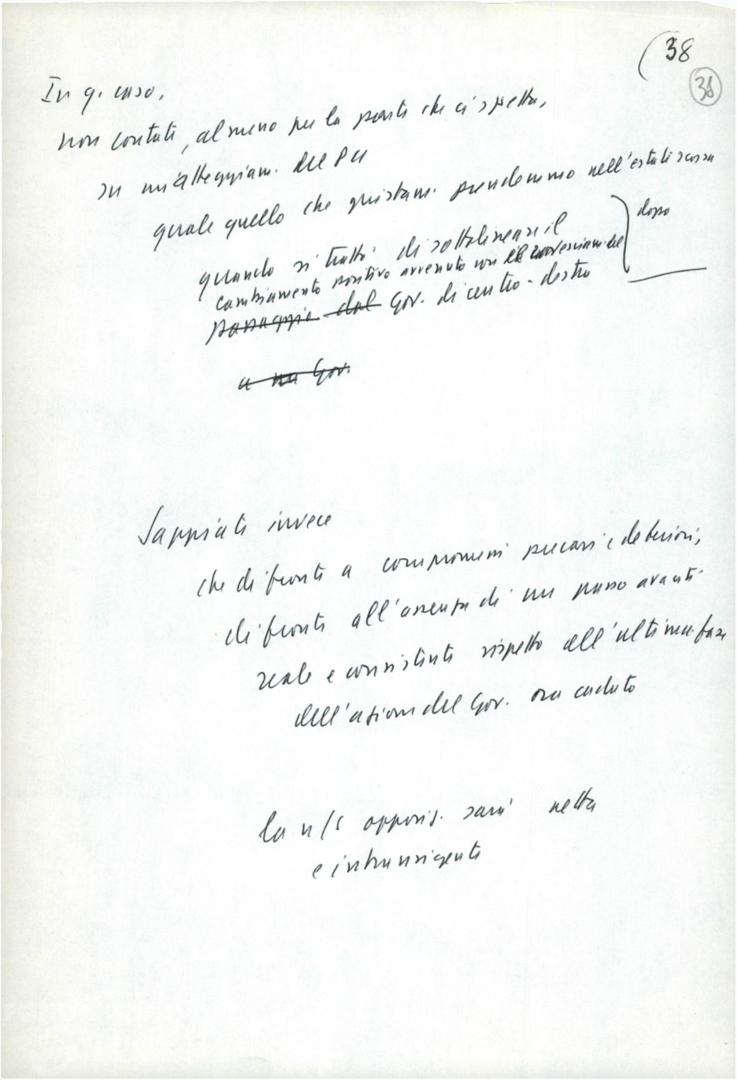 (38
38
In q. caso,
non contate, almeno per la parte che ci spetta,
su un atteggiam. del PCI
quale quello che giustam. prendemmo nell'estate scorsa
quando si trattò di sottolineare il
cambiamento positivo avvenuto con il rovesciam. del
dopo
passaggio dal Gov. di centro-destra
a un Gov.
Sappiate invece
che di fronte a compromessi precari e deteriori,
di fronte all'assenza di un passo avanti
reale e consistente rispetto all'ultima fase
dell'azione del Gov. ora caduto
la n/s opposiz. sarà netta
e intransigente